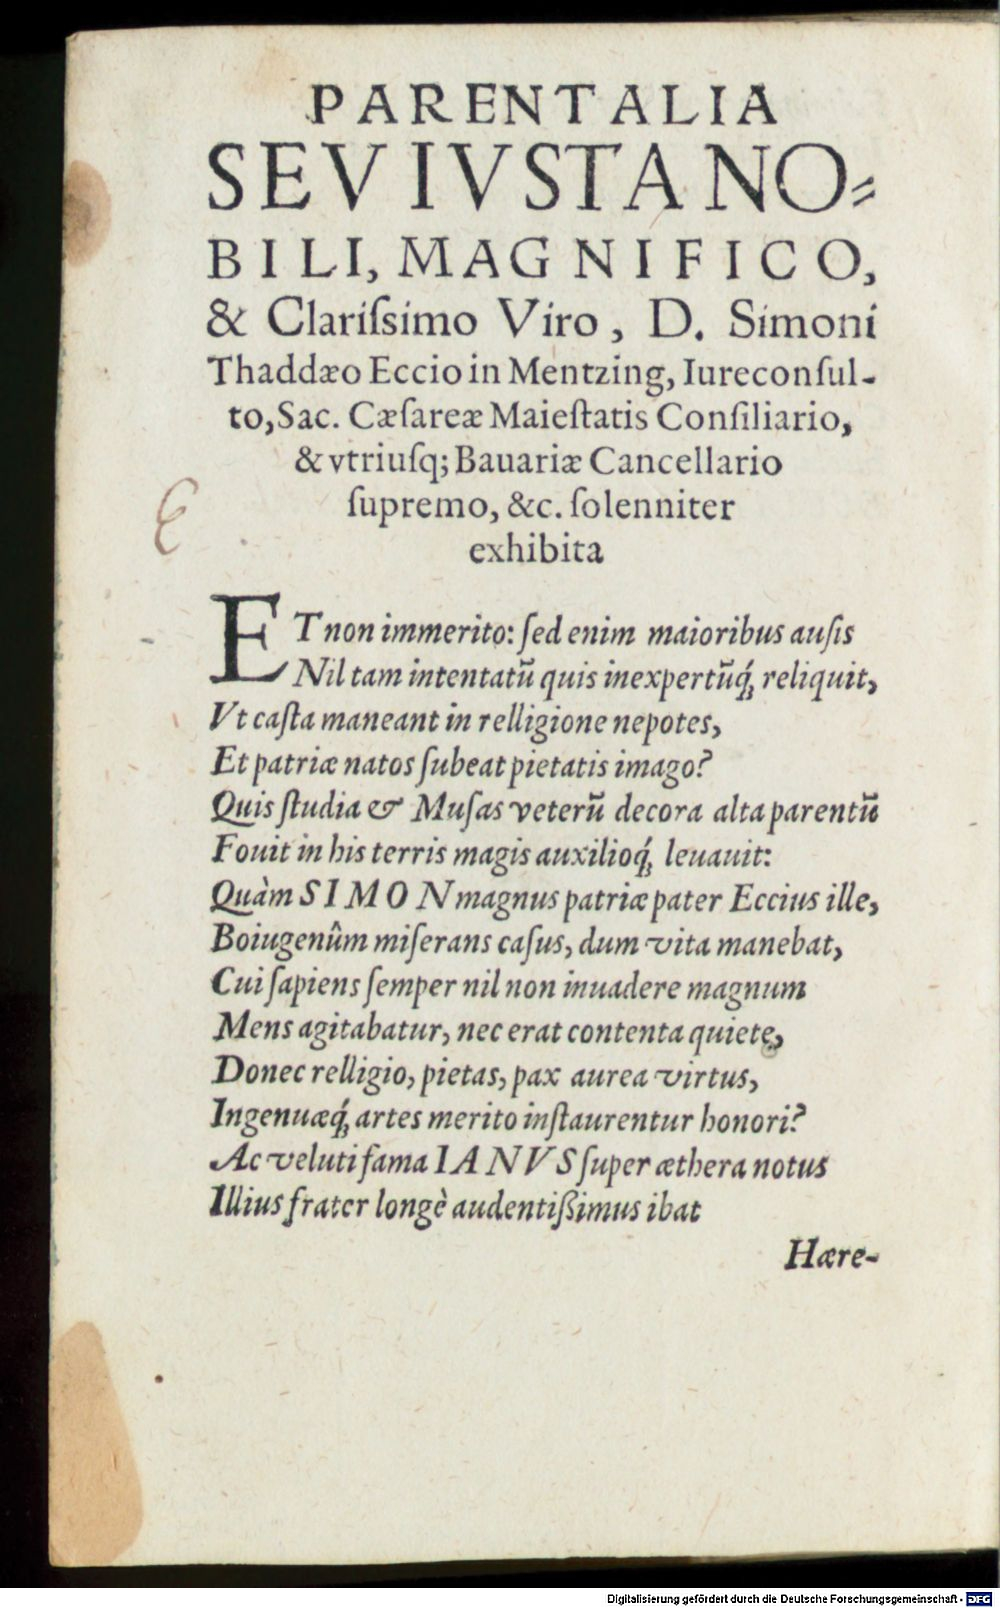 PARENTALIA
SEV IVSTA NO=
BILI, MAGNIFICO,
& Clariſsimo Viro, D. Simoni
Thaddæo Eccio in Mentzing, Iureconſul-
to, Sac. Cæſareæ Maieſtatis Conſiliario,
& vtriuſq; Bauariæ Cancellario
ſupremo, &c. ſolenniter
exhibita
ET non immerito: ſed enim maioribus auſis
Nil tam intentatū quis inexpertūq́; reliquit,
Vt caſta maneant in relligione nepotes,
Et patriæ natos ſubeat pietatis imago?
Quis ſtudia & Muſas veterū decora alta parentū
Fouit in his terris magis auxilioq́; leuauit:
Quàm SIMON magnus patriæ pater Eccius ille,
Boiugenûm miſerans caſus, dum vita manebat,
Cui ſapiens ſemper nil non inuadere magnum
Mens agitabatur, nec erat contenta quiete,
Donec relligio, pietas, pax aurea virtus,
Ingenuæq́; artes merito inſtaurentur honori?
Ac veluti fama IANVS ſuper æthera notus
Illius frater longè audentiſsimus ibat
Hære-
Digitalisierung gefördert durch die Deutsche Forschungsgemeinschaft - DFG